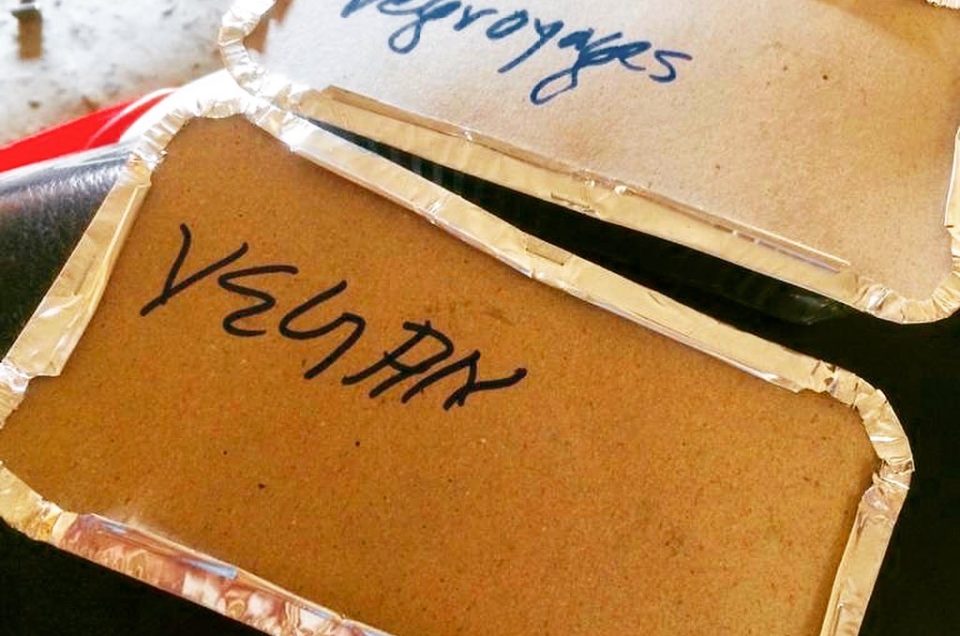 vegevoyages
VEGAN